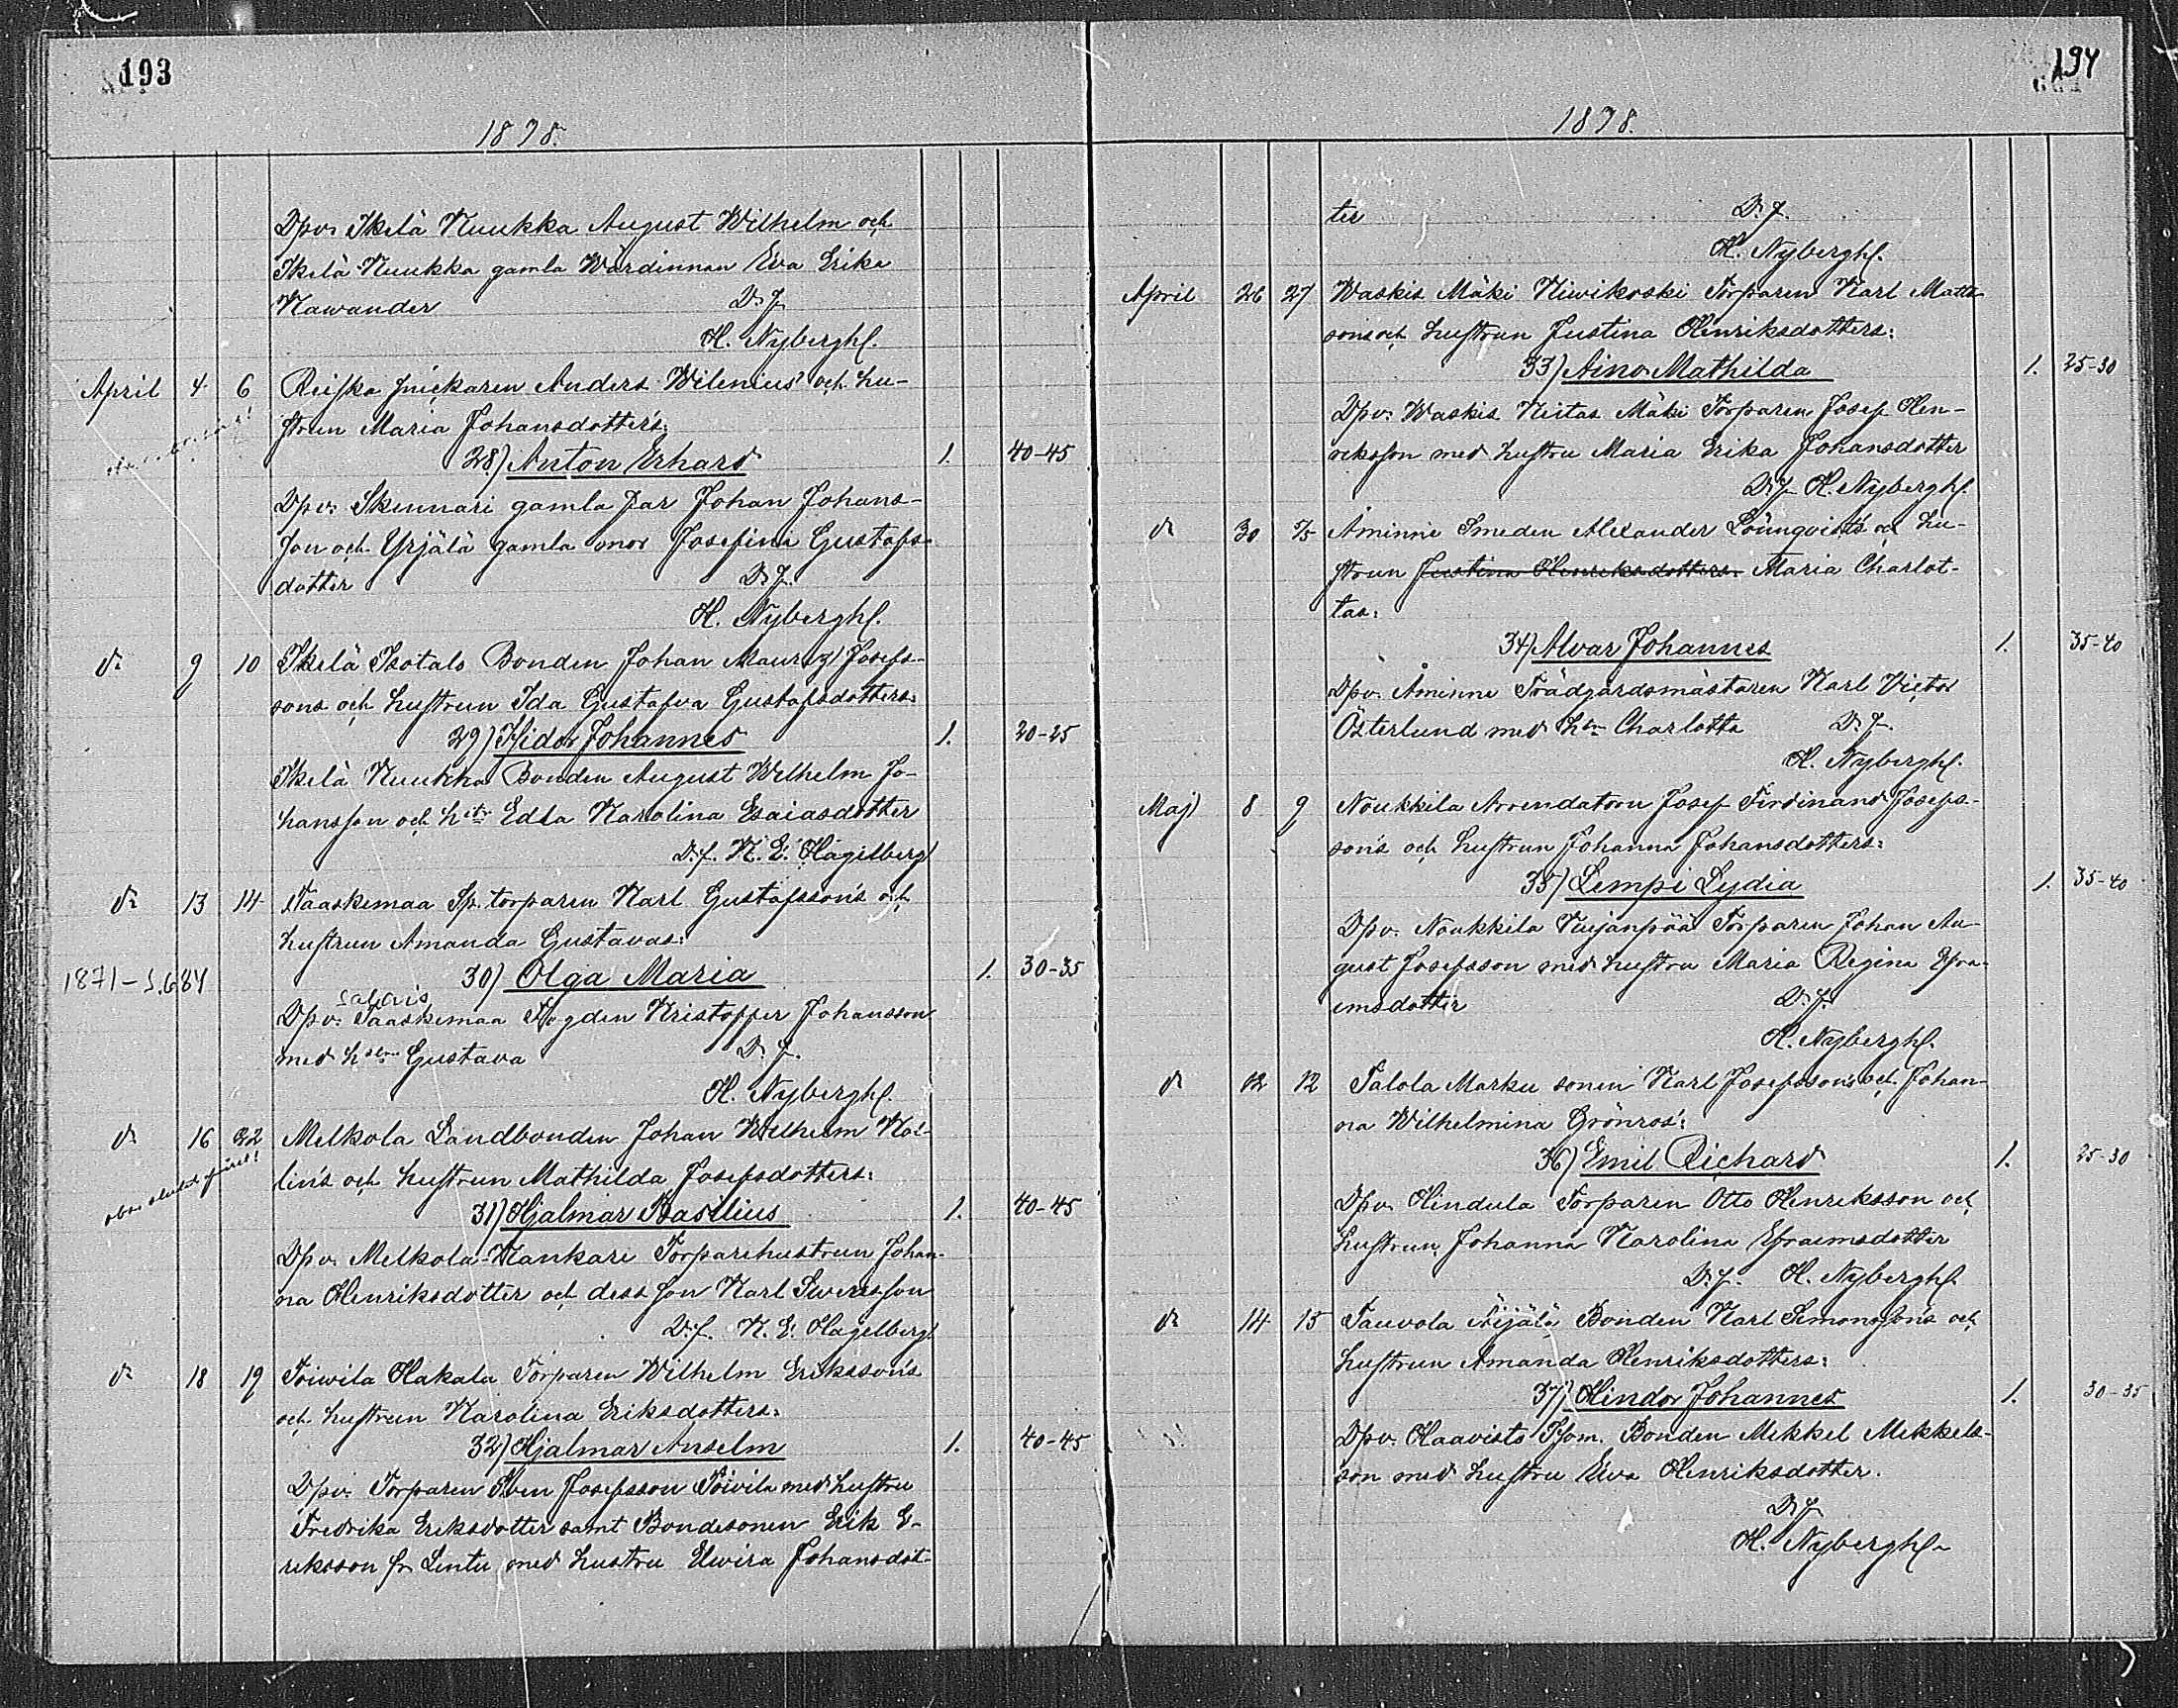 193
1898.
Dpv: Ikelä Kuukka August Wilhelm och
Ikelä Kuukka gamla Wärdinnan Eva Erika
Nawander D. f.
H. Nybergh.
April 4 6 Reiska snickaren Anders Wilenius' och hu-
strun Maria Johansdotters:
28) Anton Erhard 1. 40-45
Dpv: Skinnari gamla far Johan Johans-
son och Yrjälä gamla mor Josefina Gustafs-
dotter D. f.
H. Nybergh.
d:o 9 10 Ikelä Isotalo Bonden Johan Mauritz Josefs-
sons och hustrun Ida Gustafva Gustafsdotters:
29) Fidor Johannes 1. 20-25
Ikelä Kuukka Bonden August Wilhelm Jo-
hansson och h:str Edla Karolina Esaiasdotter
D. f. K. E. Hagelberg
d:o 13 14 Taaskemaa Sp. torparen Karl Gustafsson's och
hustrun Amanda Gustavas:
1871-S.684 30) Olga Maria 1. 30-35
Salois
Dpv: Taaskemaa Fogden Kristoffer Johansson
med h:strn Gustava D. f.
H. Nybergh.
d:o 16 22 Melkola Landbonden Johan Wilhelm Mal-
lin's och hustrun Mathilda Josefsdotters:
31) Hjalmar Basilius 1. 40-45
Dpv. Melkola-Kankare Torparehustrun Johan-
na Henriksdotter och dess son Karl Sweriksson
D. f. K. E. Hagelberg.
d:o 18 19 Toiwila Hakala Torparen Wilhelm Eriksson's
och hustrun Karolina Eriksdotters:
32) Hjalmar Anselm 1. 40-45
Dpv. Torparen Sven Josefsson Toivila med hustru
Fredrika Eriksdotter samt Bondesonen Erik E-
riksson fr Lintu med hustru Elwira Johansdot-
194
1898.
ter D. f.
H. Nybergh.
April 26 27 Waskis Mäki Kiwikoski Torparen Karl Matts-
sons och hustrun Justina Henriksdotters:
33) Aino Mathilda 1. 25-30
Dpv. Waskis Keitas Mäki Torparen Josef Hen-
riksson med hustru Maria Erika Johansdotter
D. f. H. Nybergh.
d:o 30 1/5 Åminne Smeden Alexander Lönnqvist's och hu-
strun Justina Henriksdotters Maria Charlot-
tas:
34) Alvar Johannes 1. 35-40
Dpv. Åminne Trädgårdsmästaren Karl Victor
Österlund med h:tru Charlotta D. f.
H. Nybergh.
Maj 8 9 Noukkila Arrendatorn Josef Ferdinand Josefs-
son's och hustrun Johanna Johansdotters:
35) Lempi Lydia 1. 35-40
Dpv. Noukkila Kujanpää Torparen Johan Au-
gust Josefsson med hustru Maria Regina Efra-
imsdotter D. f.
H. Nybergh.
d:o 12 12 Talola Marku sonen Karl Josefsson's och Johan-
na Wilhelmina Grönros':
36) Emil Richard 1. 25-30
Dpv. Hindula Torparen Otto Henriksson och
hustrun Johanna Karolina Efraimsdotter
D. f. H. Nybergh.
d:o 14 15 Tauvola Äijälä Bonden Karl Simonsson's och
hustrun Amanda Henriksdotters:
37) Hindor Johannes 1. 30-35
Dpv. Haavisto Tom. Bonden Mikkel Mikkels-
son med hustru Ewa Henriksdotter.
D. f.
H. Nybergh.